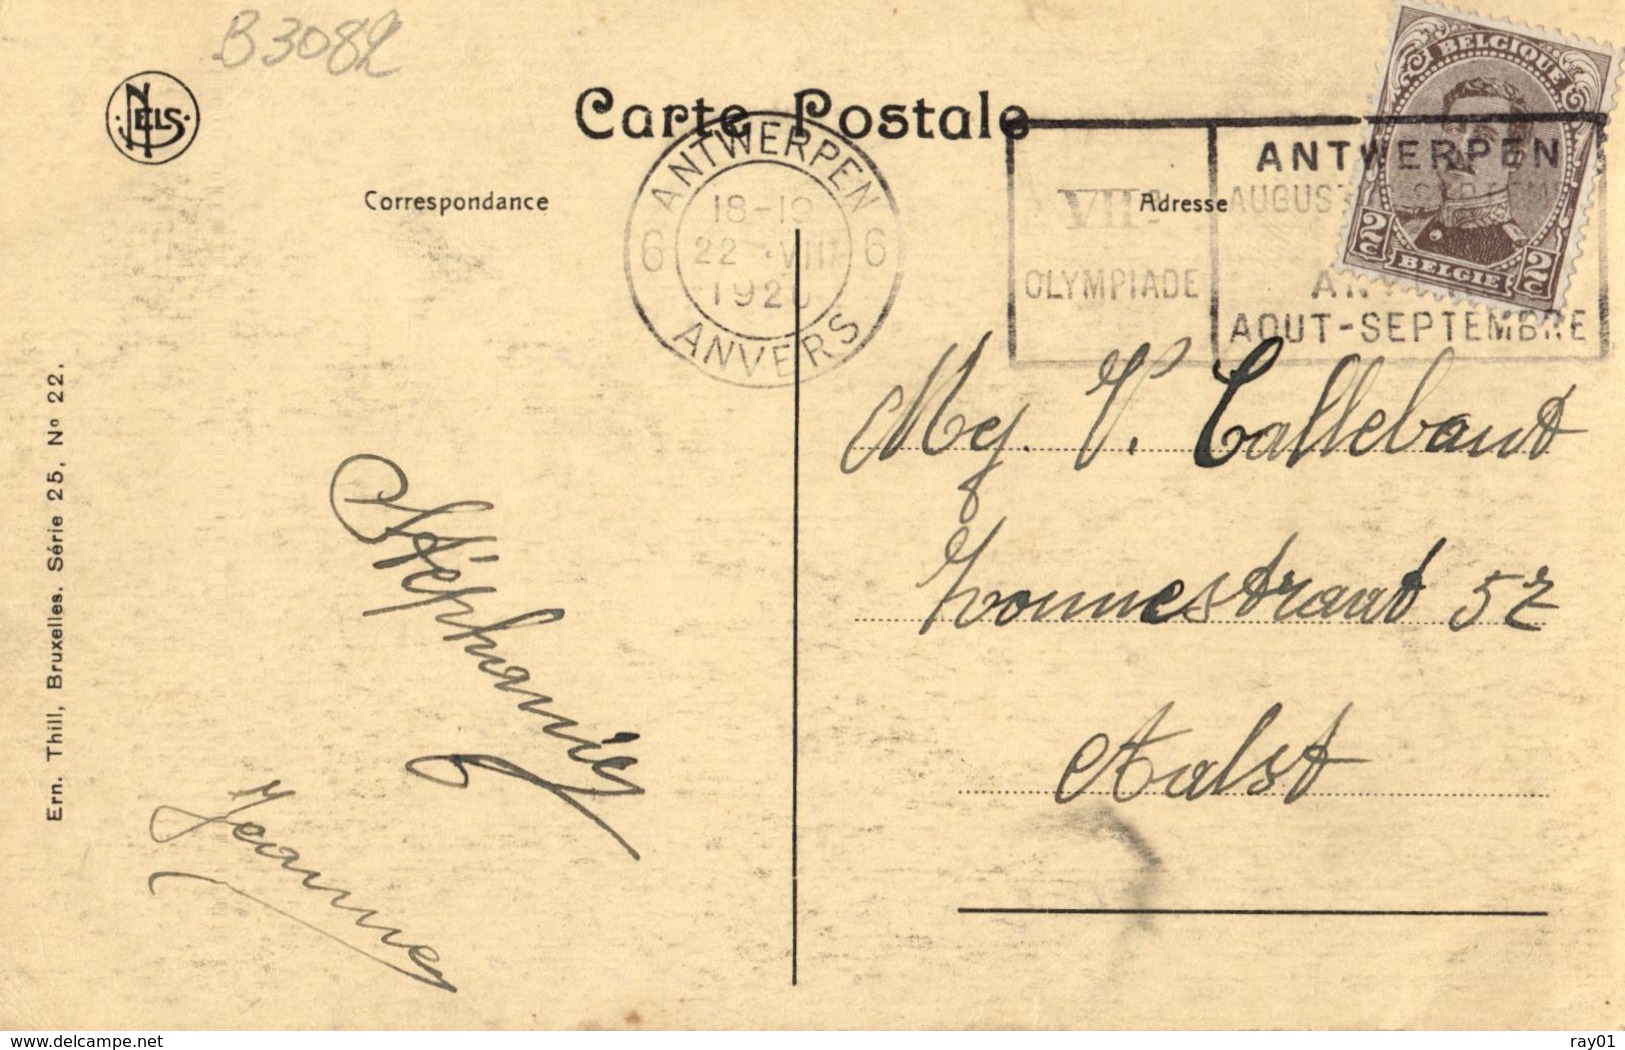 B3082
NELS
Carte Postale
BELGIQUE
2c 2c
BELGIE
ANTWERPEN
6 18-19 6
22 VIII
1920
ANVERS
VIIe
OLYMPIADE
ANTWERPEN
AUGUST
AOUT-SEPTEMBRE
Correspondance
Adresse
Mej. V. Callebaut
Zonnestraat 52
Aalst
Stéphanie
Jeanne
Ern. Thill, Bruxelles. Série 25, No 22.
delcampe.net
ray01